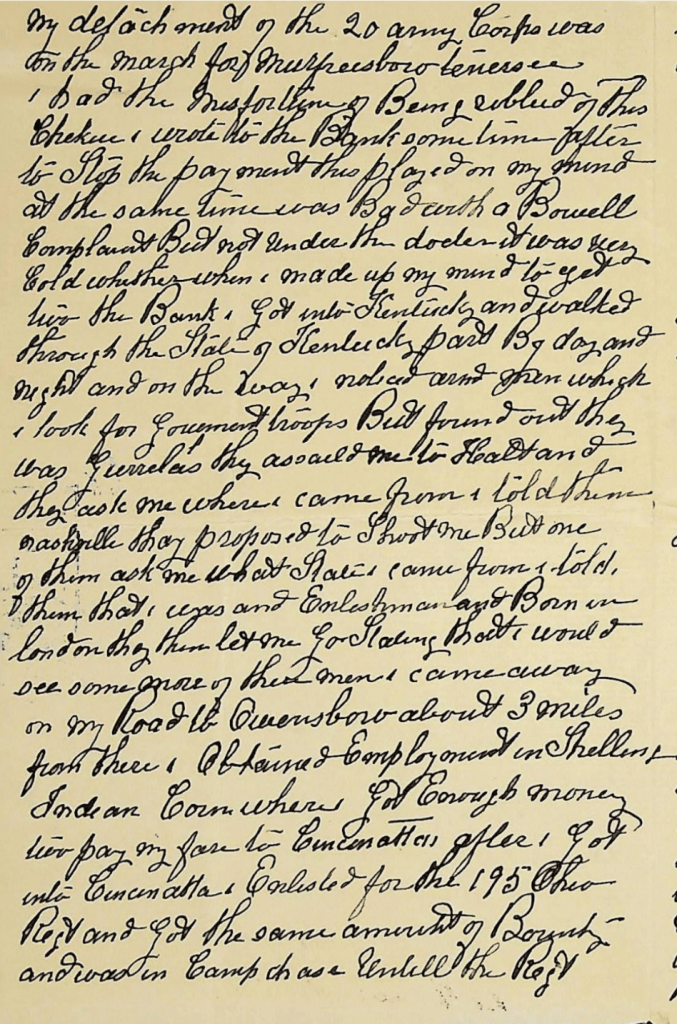 my detachment of the 20 army Corps was
on the march for Murfeesboro tenersee
i had the misfortune of Being robbed of This
Cheken i wrote to the Bank some time after
to Stop the payment this played on my mind
at the same time was Bad with a Bowell
Complaint But not under the docter it was very
Cold whether when i made up my mind to get
two the Bank i Got into Kentucky and walked
through the State of Kentucky part By day and
night and on the way i noticed armd men which
i look for Goverment troops But found out they
was Guerrelas they assaild me to Halt and
they ask me where i came from i told them
nashville thay proposed to Shoot me But one
of them ask me what State i came from i told
them that i was and Enlishman and Born in
london they then let me Go Stating that i would
see some more of their men i came away
on my Road to Owensboro about 3 miles
from there i Obtained Employment in Shelling
Indean Corn where i Got Enough money
two pay my fare to Cincinatta after i Got
into Cincinatta i Enlisted for the 195 Ohio
Regt and Got the same amount of Bounty
and was in Camp chase Untill the Regt